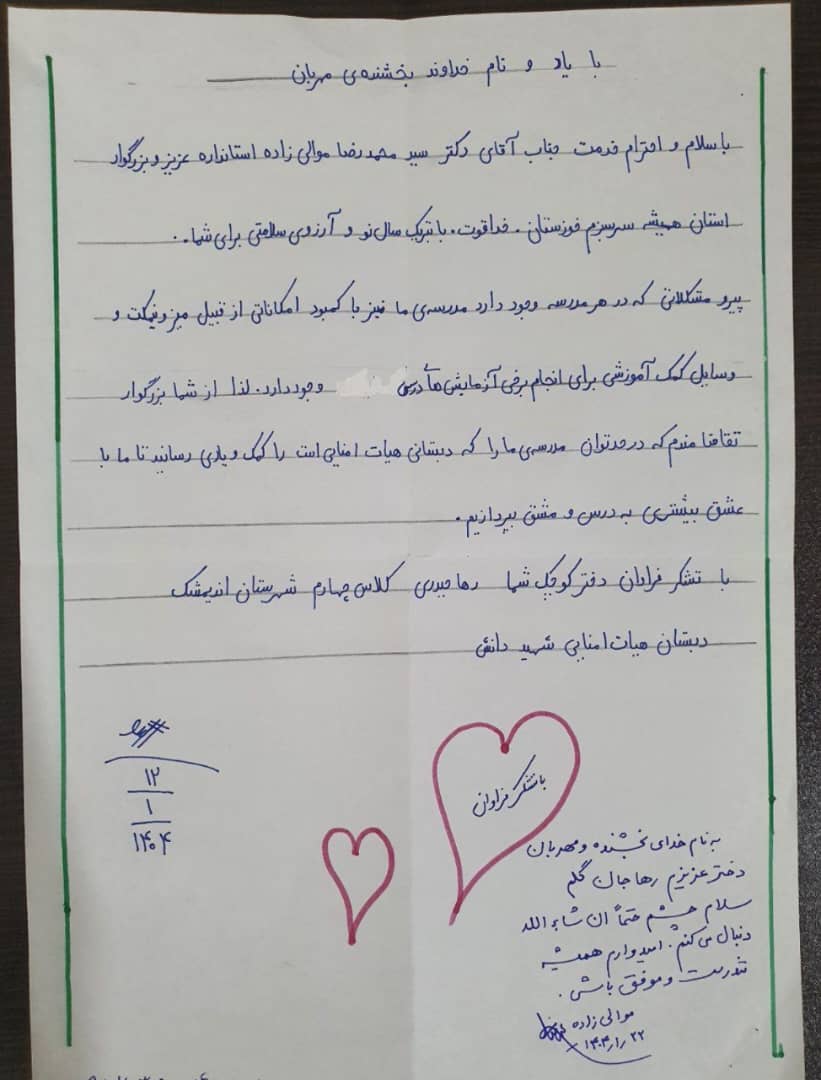 با یاد و نام خداوند بخشنده‌ی مهربان
با سلام و احترام خدمت جناب آقای دکتر سید محمدرضا موالی زاده استانداره عزیز و بزرگوار
استان همیشه سرسبزم خوزستان. خداقوت. با تبریک سال نو و آرزوی سلامتی برای شما.
پیرو مشکلاتی که در هر مدرسه وجود دارد مدرسه‌ی ما نیز با کمبود امکاناتی از قبیل میز و نیمکت و
وسایل کمک آموزشی برای انجام برخی آزمایش های درسی وجود دارد. لذا از شما بزرگوار
تقاضا مندم که در حد توان مدرسه‌ی ما را که دبستانی هیات امنایی است را کمک و یاری رسانید تا ما با
عشق بیشتری به درس و مشق بپردازیم.
با تشکر فراوان دختر کوچک شما رها حیدری کلاس چهارم شهرستان اندیمشک
دبستان هیات امنایی شهید دانش
۱۲
۱
۱۴۰۴
با تشکر فراوان
به نام خدای بخشنده و مهربان
دختر عزیزم رها جان گلم
سلام چشم حتماً ان شاء الله
دنبال می کنم. امیدوارم همیشه
تندرست و موفق باشی.
موالی زاده
۱۴۰۴/۱/۲۲